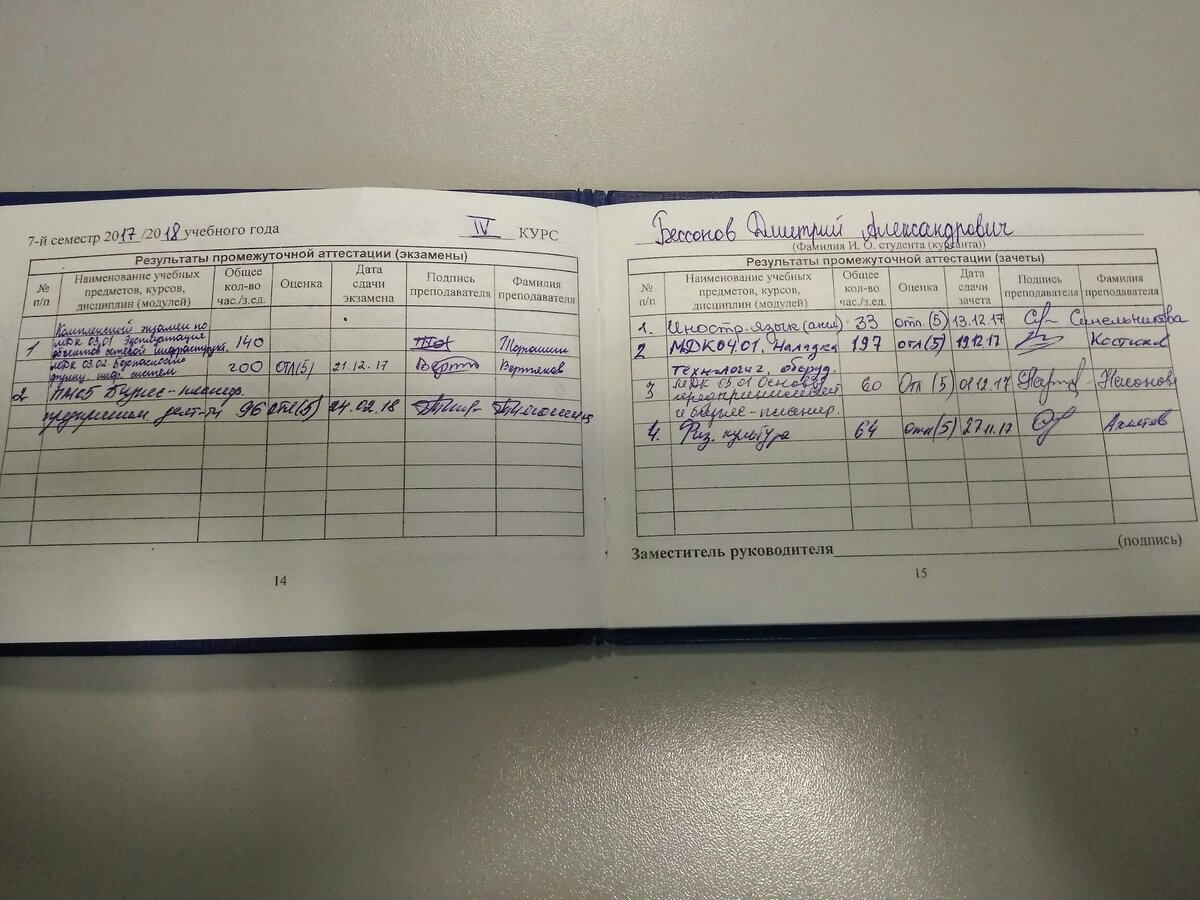 7-й семестр 2017/2018 учебного года IV КУРС
Результаты промежуточной аттестации (экзамены)
№ п/п Наименование учебных предметов, курсов, дисциплин (модулей) Общее кол-во час./з.ед. Оценка Дата сдачи экзамена Подпись преподавателя Фамилия преподавателя
Комплексный экзамен по
1 МДК 03.01 Эксплуатация
объектов сетевой инфраструкт. 140
МДК 03.02 Безопасность 200 отл(5) 21.12.17 Вертянов
функц. инф. систем
2 ПМ05 Бизнес-планир.
предприним. деят-ти 96 отл(5) 24.02.18
14
Бессонов Дмитрий Александрович
(Фамилия И. О. студента (курсанта))
Результаты промежуточной аттестации (зачеты)
№ п/п Наименование учебных предметов, курсов, дисциплин (модулей) Общее кол-во час./з.ед. Оценка Дата сдачи зачета Подпись преподавателя Фамилия преподавателя
1. Иностр. язык (англ) 33 отл. (5) 13.12.17 Синельникова
2 МДК 04.01. Наладка 197 отл (5) 19.12.17 Костюков
технологич. оборуд.
3 МДК 05.01 Основы 60 Отл (5) 01.12.17
предпринимательск
и бизнес-планир.
4. Физ. культура 64 отл (5) 27.11.17 Ахметов
Заместитель руководителя (подпись)
15